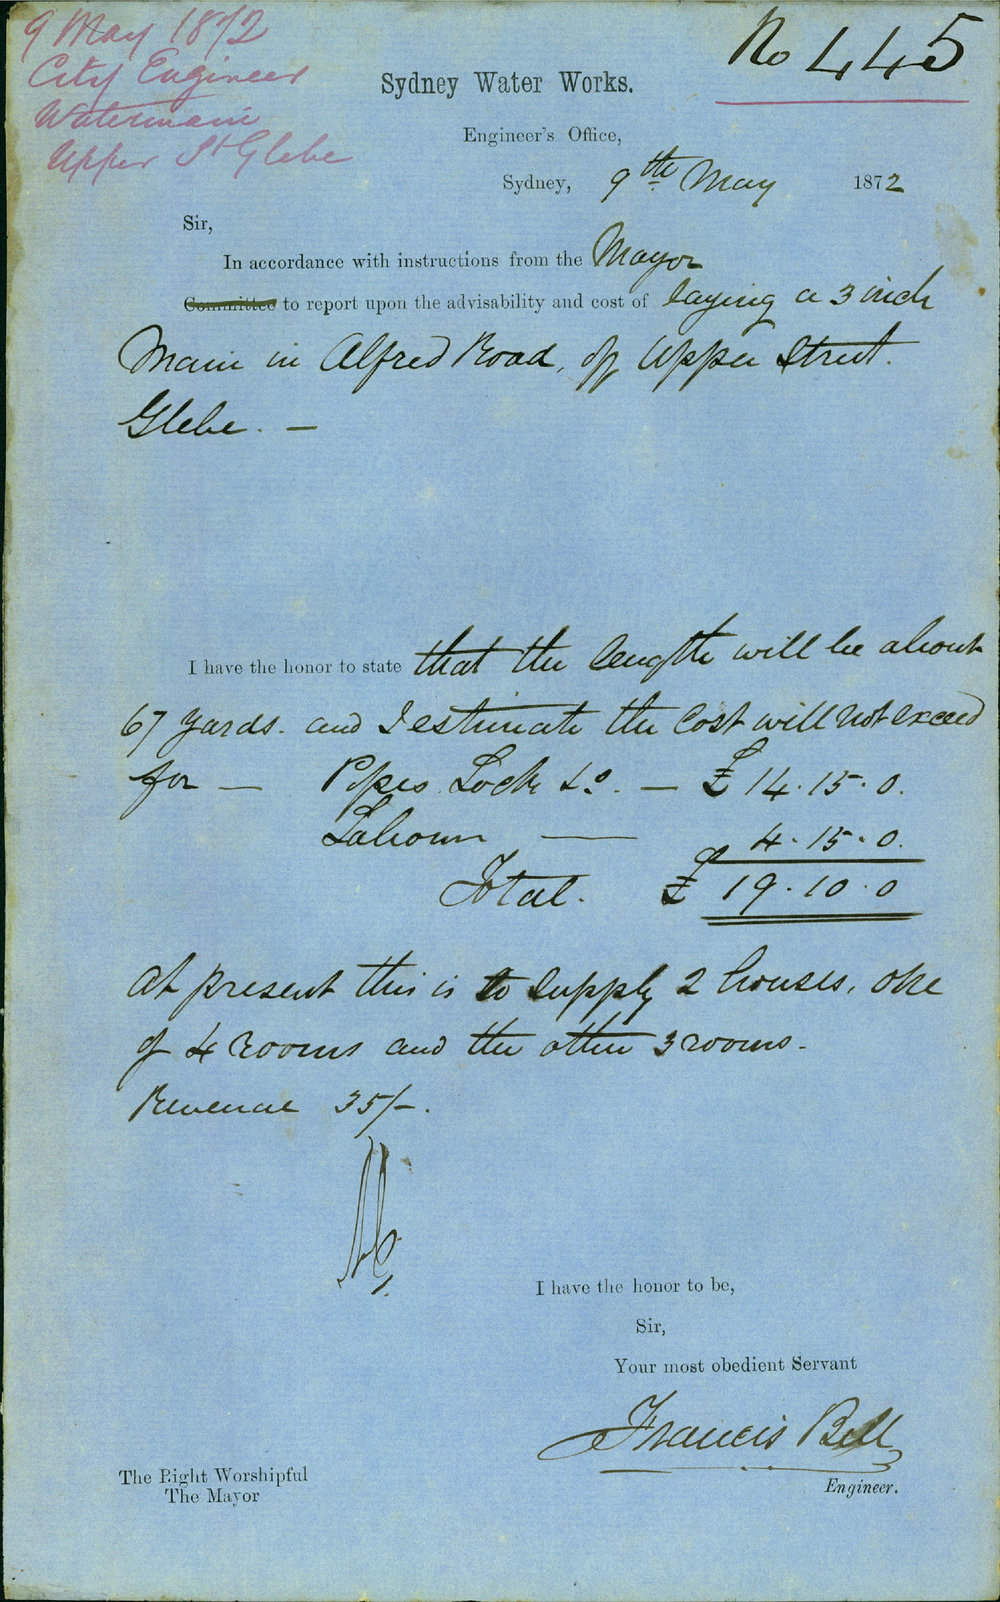 9 May 1872
City Engineer
Watermain
Upper St Glebe
No 445
Sydney Water Works.
Engineer's Office,
Sydney, 9th May 1872
Sir,
In accordance with instructions from the Mayor
Committee to report upon the advisability and cost of laying a 3 inch
Main in Alfred Road, off Upper Street.
Glebe. —
I have the honor to state that the length will be about
67 yards. and I estimate the Cost will not exceed
for — Pipes Lock &c. — £14.15.0.
Labour — 4.15.0.
Total. £19.10.0
At present this is to supply 2 houses, one
of 4 rooms and the other 3 rooms.
Revenue 35/-.
I have the honor to be,
Sir,
Your most obedient Servant
Francis Bell
Engineer.
The Right Worshipful
The Mayor